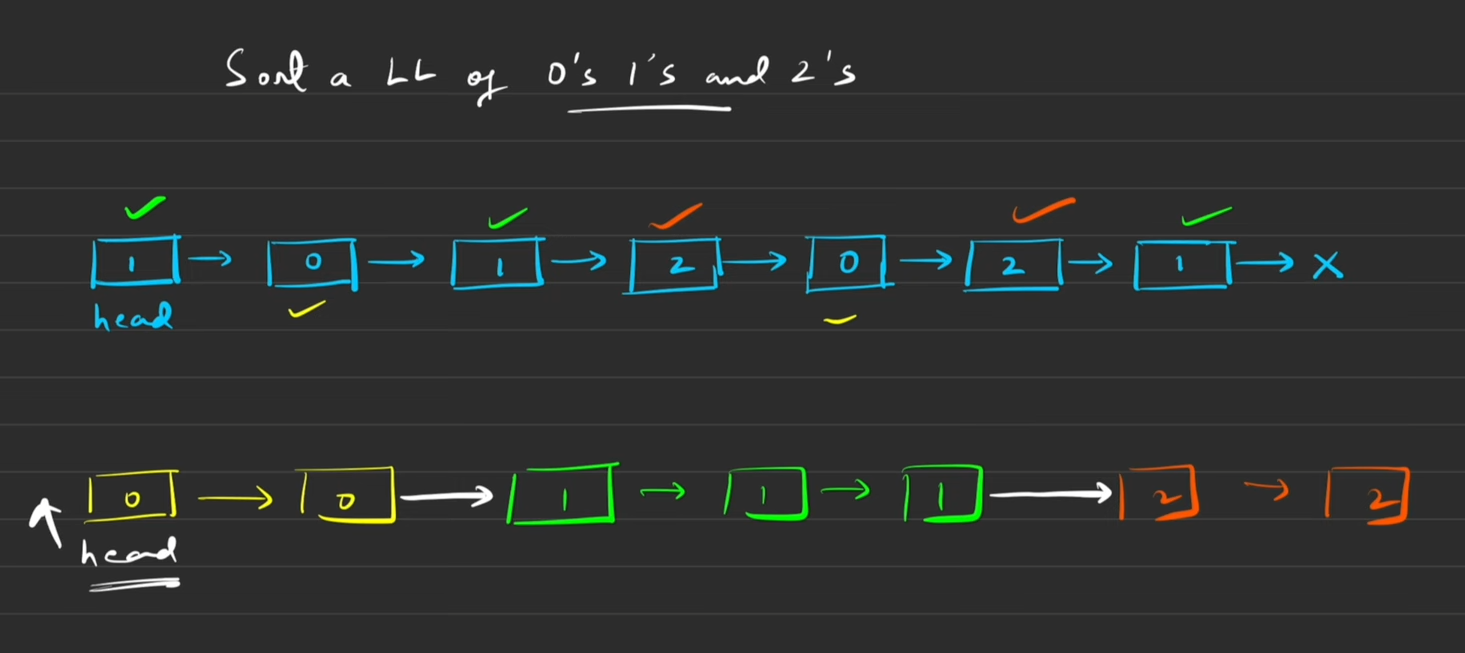 Sort a LL of 0's 1's and 2's
1 → 0 → 1 → 2 → 0 → 2 → 1 → X
head
0 → 0 → 1 → 1 → 1 → 2 → 2
head